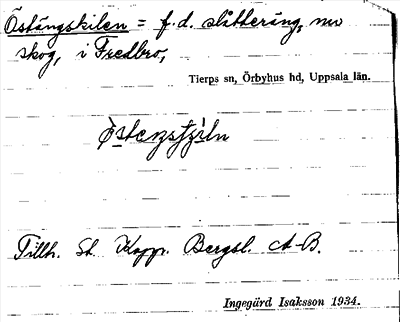 Östängskilen = f.d. slåtteräng, nu
skog, i Fredbro,
Tierps sn, Örbyhus hd, Uppsala län.
Tillh. St. Kopp. Bergsl. A-B.
Ingegärd Isaksson 1934.